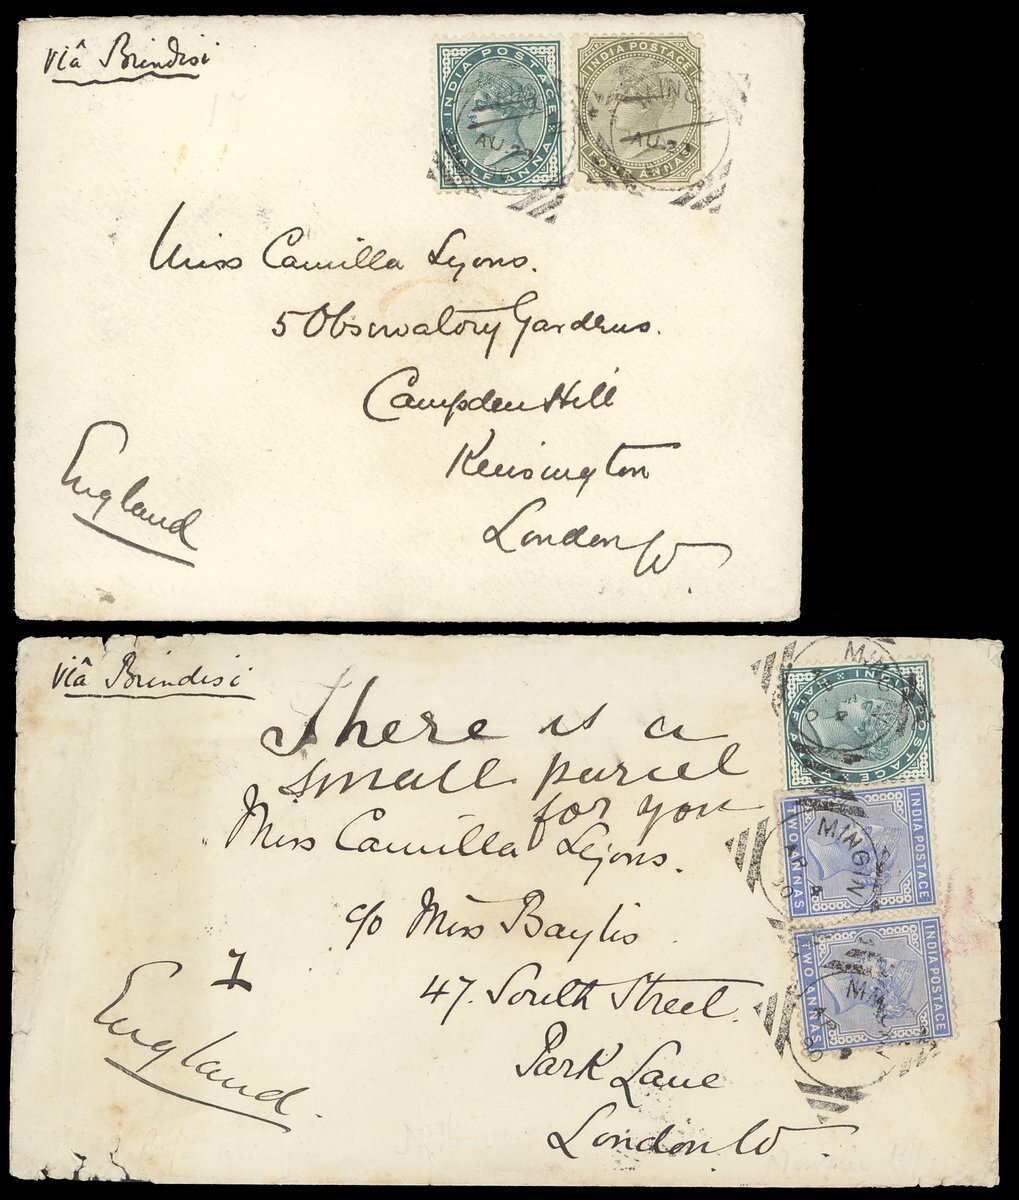 viâ Brindisi
INDIA POSTAGE
HALF ANNA
AU 23
INDIA POSTAGE
FOUR ANNAS
AU 23
Miss Camilla Lyons.
5 Observatory Gardens.
Campden Hill
Kensington
London W.
England
viâ Brindisi
There is a
small parcel
for you
Miss Camilla Lyons.
c/o Miss Baylis
47. South Street.
Park Lane
London W.
England
INDIA POSTAGE
MINGIN
AP
90
INDIA POSTAGE
TWO ANNAS
AP
90
INDIA POSTAGE
TWO ANNAS